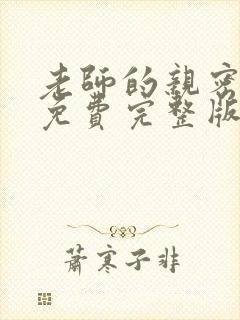 老師的親密
免費完整版
蕭寒子非